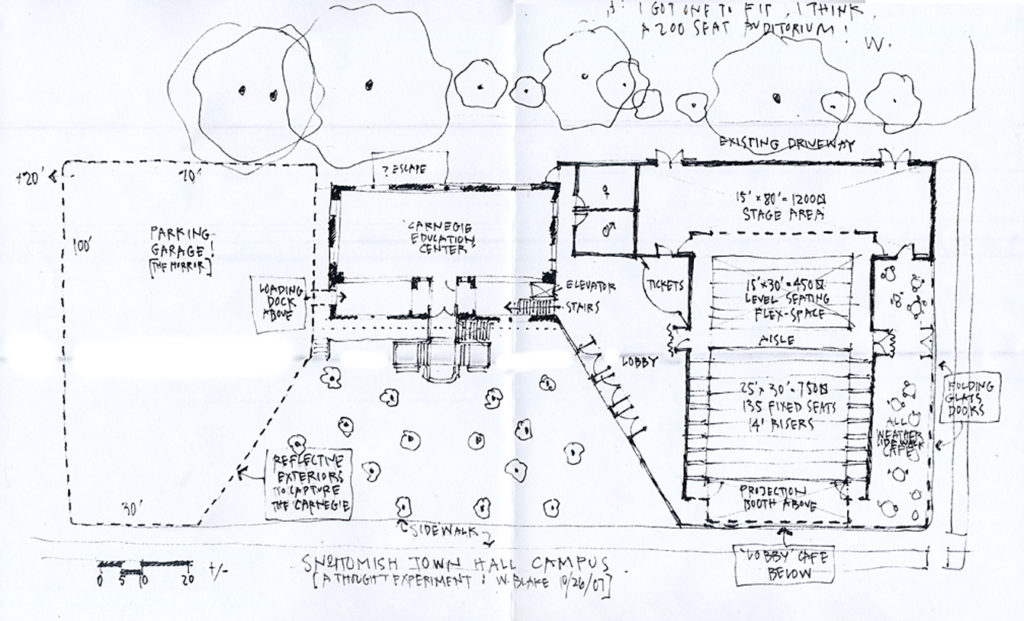 I GOT ONE TO FIT, I THINK,
A 200 SEAT AUDITORIUM!
W.
EXISTING DRIVEWAY
+20'
70'
? ESCAPE
15' x 80' = 1200
STAGE AREA
100'
PARKING
GARAGE!
[THE HORROR]
CARNEGIE
EDUCATION
CENTER
LOADING
DOCK
ABOVE
ELEVATOR
STAIRS
TICKETS
15' x 30' = 450
LEVEL SEATING
FLEX-SPACE
18'
AISLE
LOBBY
25' x 30' = 750
135 FIXED SEATS
14' RISERS
HOLDING
GLASS
DOORS
ALL
WEATHER
SIDEWALK
CAFE
REFLECTIVE
EXTERIORS
TO CAPTURE
THE CARNEGIE
30'
PROJECTION
BOOTH ABOVE
SIDEWALK
'LOBBY' CAFE
BELOW
0 5 10 20 +/-
SNOHOMISH TOWN HALL CAMPUS
[A THOUGHT EXPERIMENT: W. BLAKE 10/26/07]